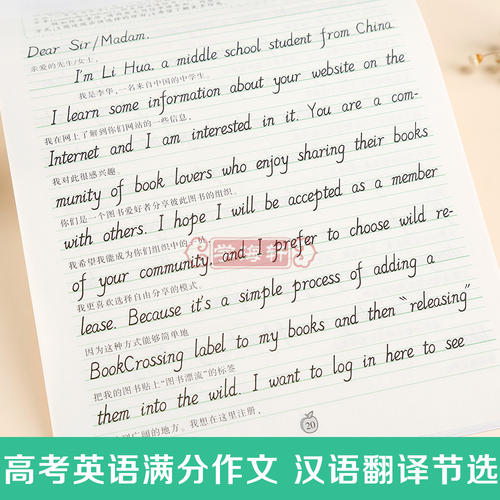 Dear Sir/Madam,
亲爱的先生/女士,
I'm Li Hua, a middle school student from China.
我是李华,一名来自中国的中学生。
I learn some information about your website on the
我在网上了解到你们网站的一些信息,
Internet and I am interested in it. You are a com-
我对此很感兴趣。
munity of book lovers who enjoy sharing their books
你们是一个图书爱好者分享彼此图书的组织。
with others. I hope I will be accepted as a member
我希望我能成为你们组织中的一
of your community, and I prefer to choose wild re-
我更喜欢选择自由分享的模式。
学海轩
lease. Because it's a simple process of adding a
因为这种方式能够简单地
BookCrossing label to my books and then "releasing"
把我的图书贴上"图书漂流"的标签
them into the wild. I want to log in here to see
广阔的地方。我想在这里注册,
20
高考英语满分作文 汉语翻译节选